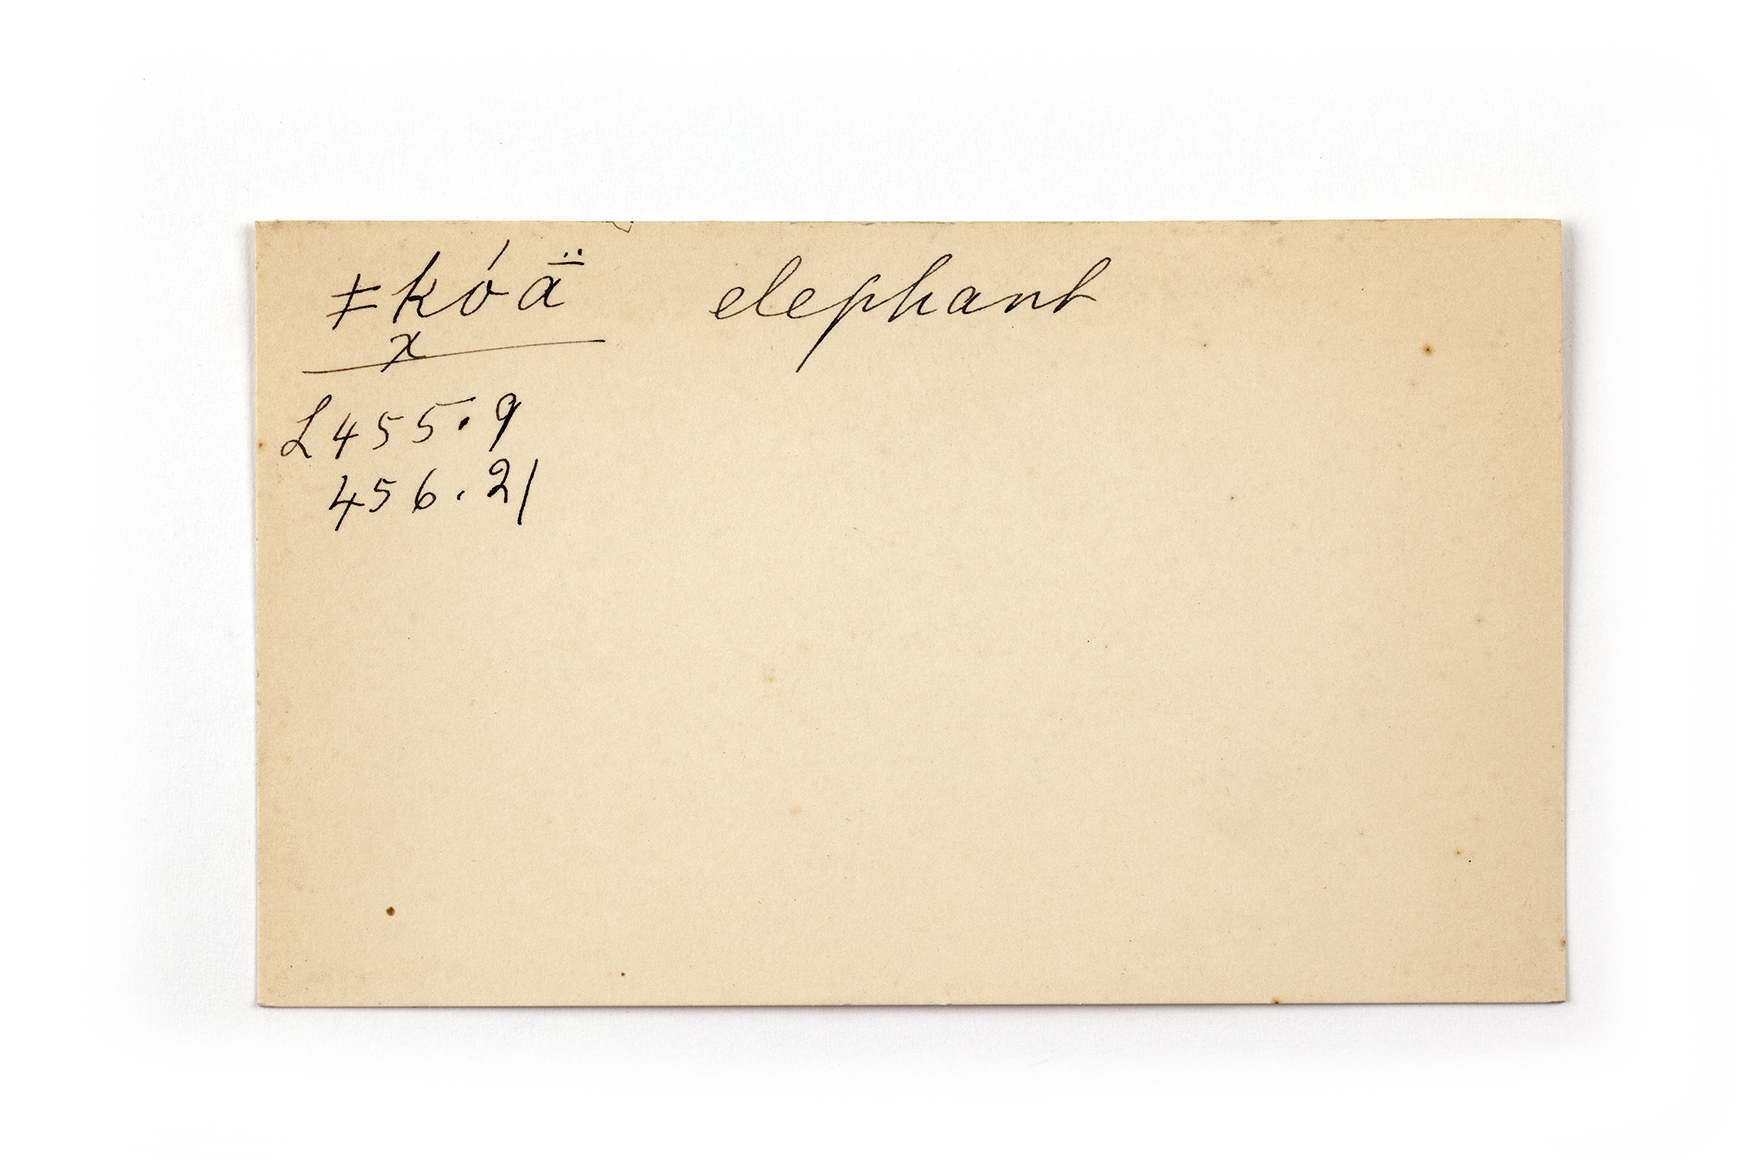 ǂkóǟ elephant
x
L 455.9
456.21